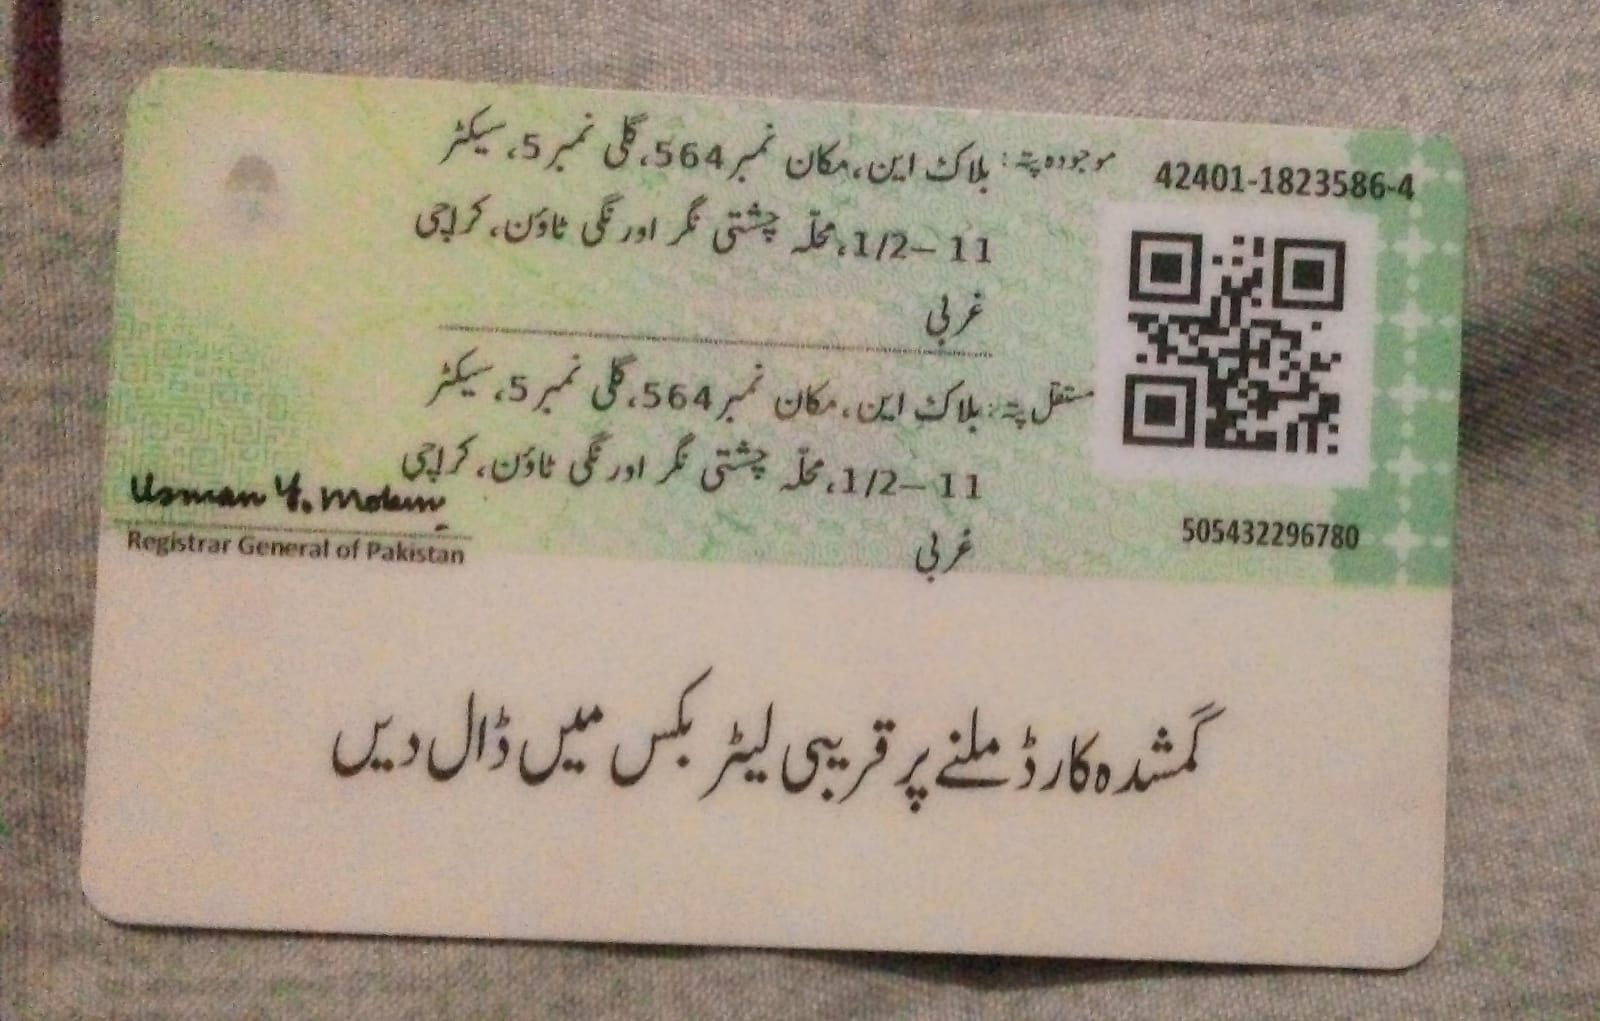 42401-1823586-4
موجودہ پتہ: بلاک این، مکان نمبر 564، گلی نمبر 5، سیکٹر
11 –1/2، محلّہ چشتی نگر اورنگی ٹاؤن، کراچی
غربی
مستقل پتہ: بلاک این، مکان نمبر 564، گلی نمبر 5، سیکٹر
11 –1/2، محلّہ چشتی نگر اورنگی ٹاؤن، کراچی
غربی
505432296780
Usman Y. Mobin
Registrar General of Pakistan
گمشدہ کارڈ ملنے پر قریبی لیٹر بکس میں ڈال دیں